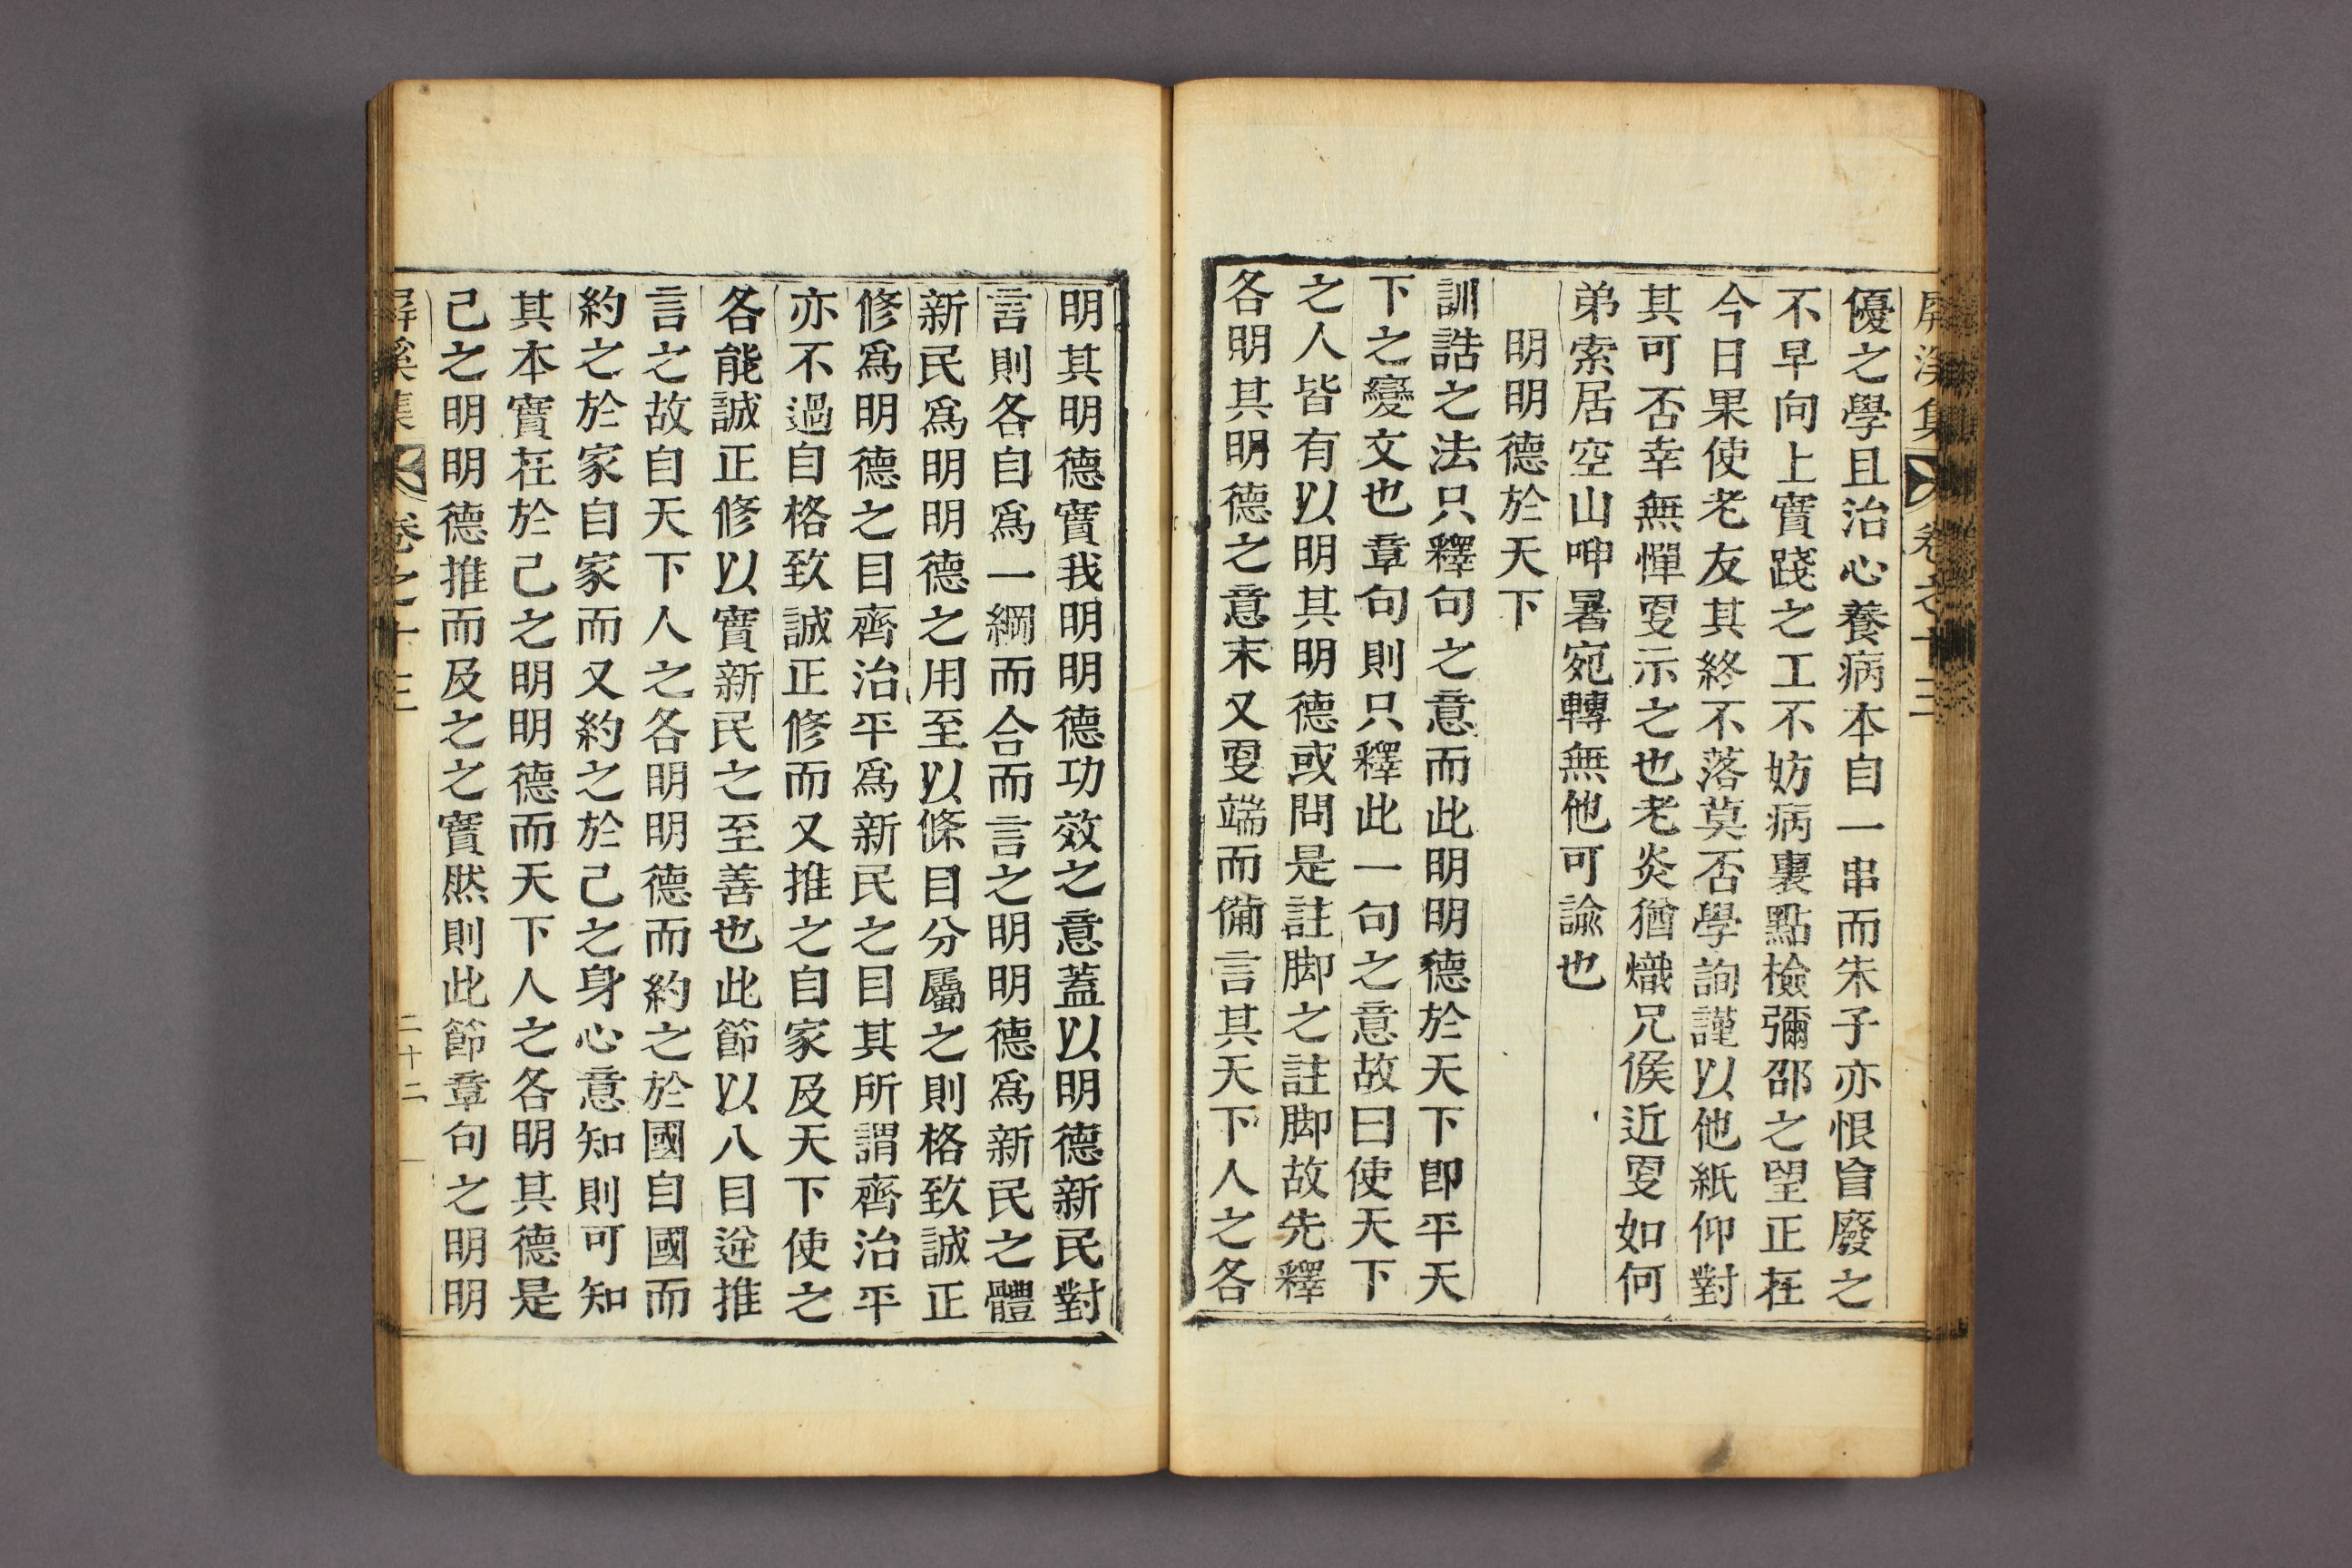 屏溪集 卷之十三
優之學且治心養病本自一串而朱子亦恨盲廢之
不早向上實踐之工不妨病裏點檢彌邵之望正在
今日果使老友其終不落莫否學詢謹以他紙仰對
其可否幸無憚更示之也老炎猶熾兄候近更如何
弟索居空山呻暑宛轉無他可諭也
明明德於天下
訓誥之法只釋句之意而此明明德於天下卽平天
下之變文也章句則只釋此一句之意故曰使天下
之人皆有以明其明德或問是註脚之註脚故先釋
各明其明德之意末又更端而備言其天下人之各
明其明德實我明明德功效之意蓋以明德新民對
言則各自爲一綱而合而言之明明德爲新民之體
新民爲明明德之用至以條目分屬之則格致誠正
修爲明德之目齊治平爲新民之目其所謂齊治平
亦不過自格致誠正修而又推之自家及天下使之
各能誠正修以實新民之至善也此節以八目逆推
言之故自天下人之各明明德而約之於國自國而
約之於家自家而又約之於己之身心意知則可知
其本實在於己之明明德而天下人之各明其德是
己之明明德推而及之之實然則此節章句之明明
屏溪集 卷之十三 二十二